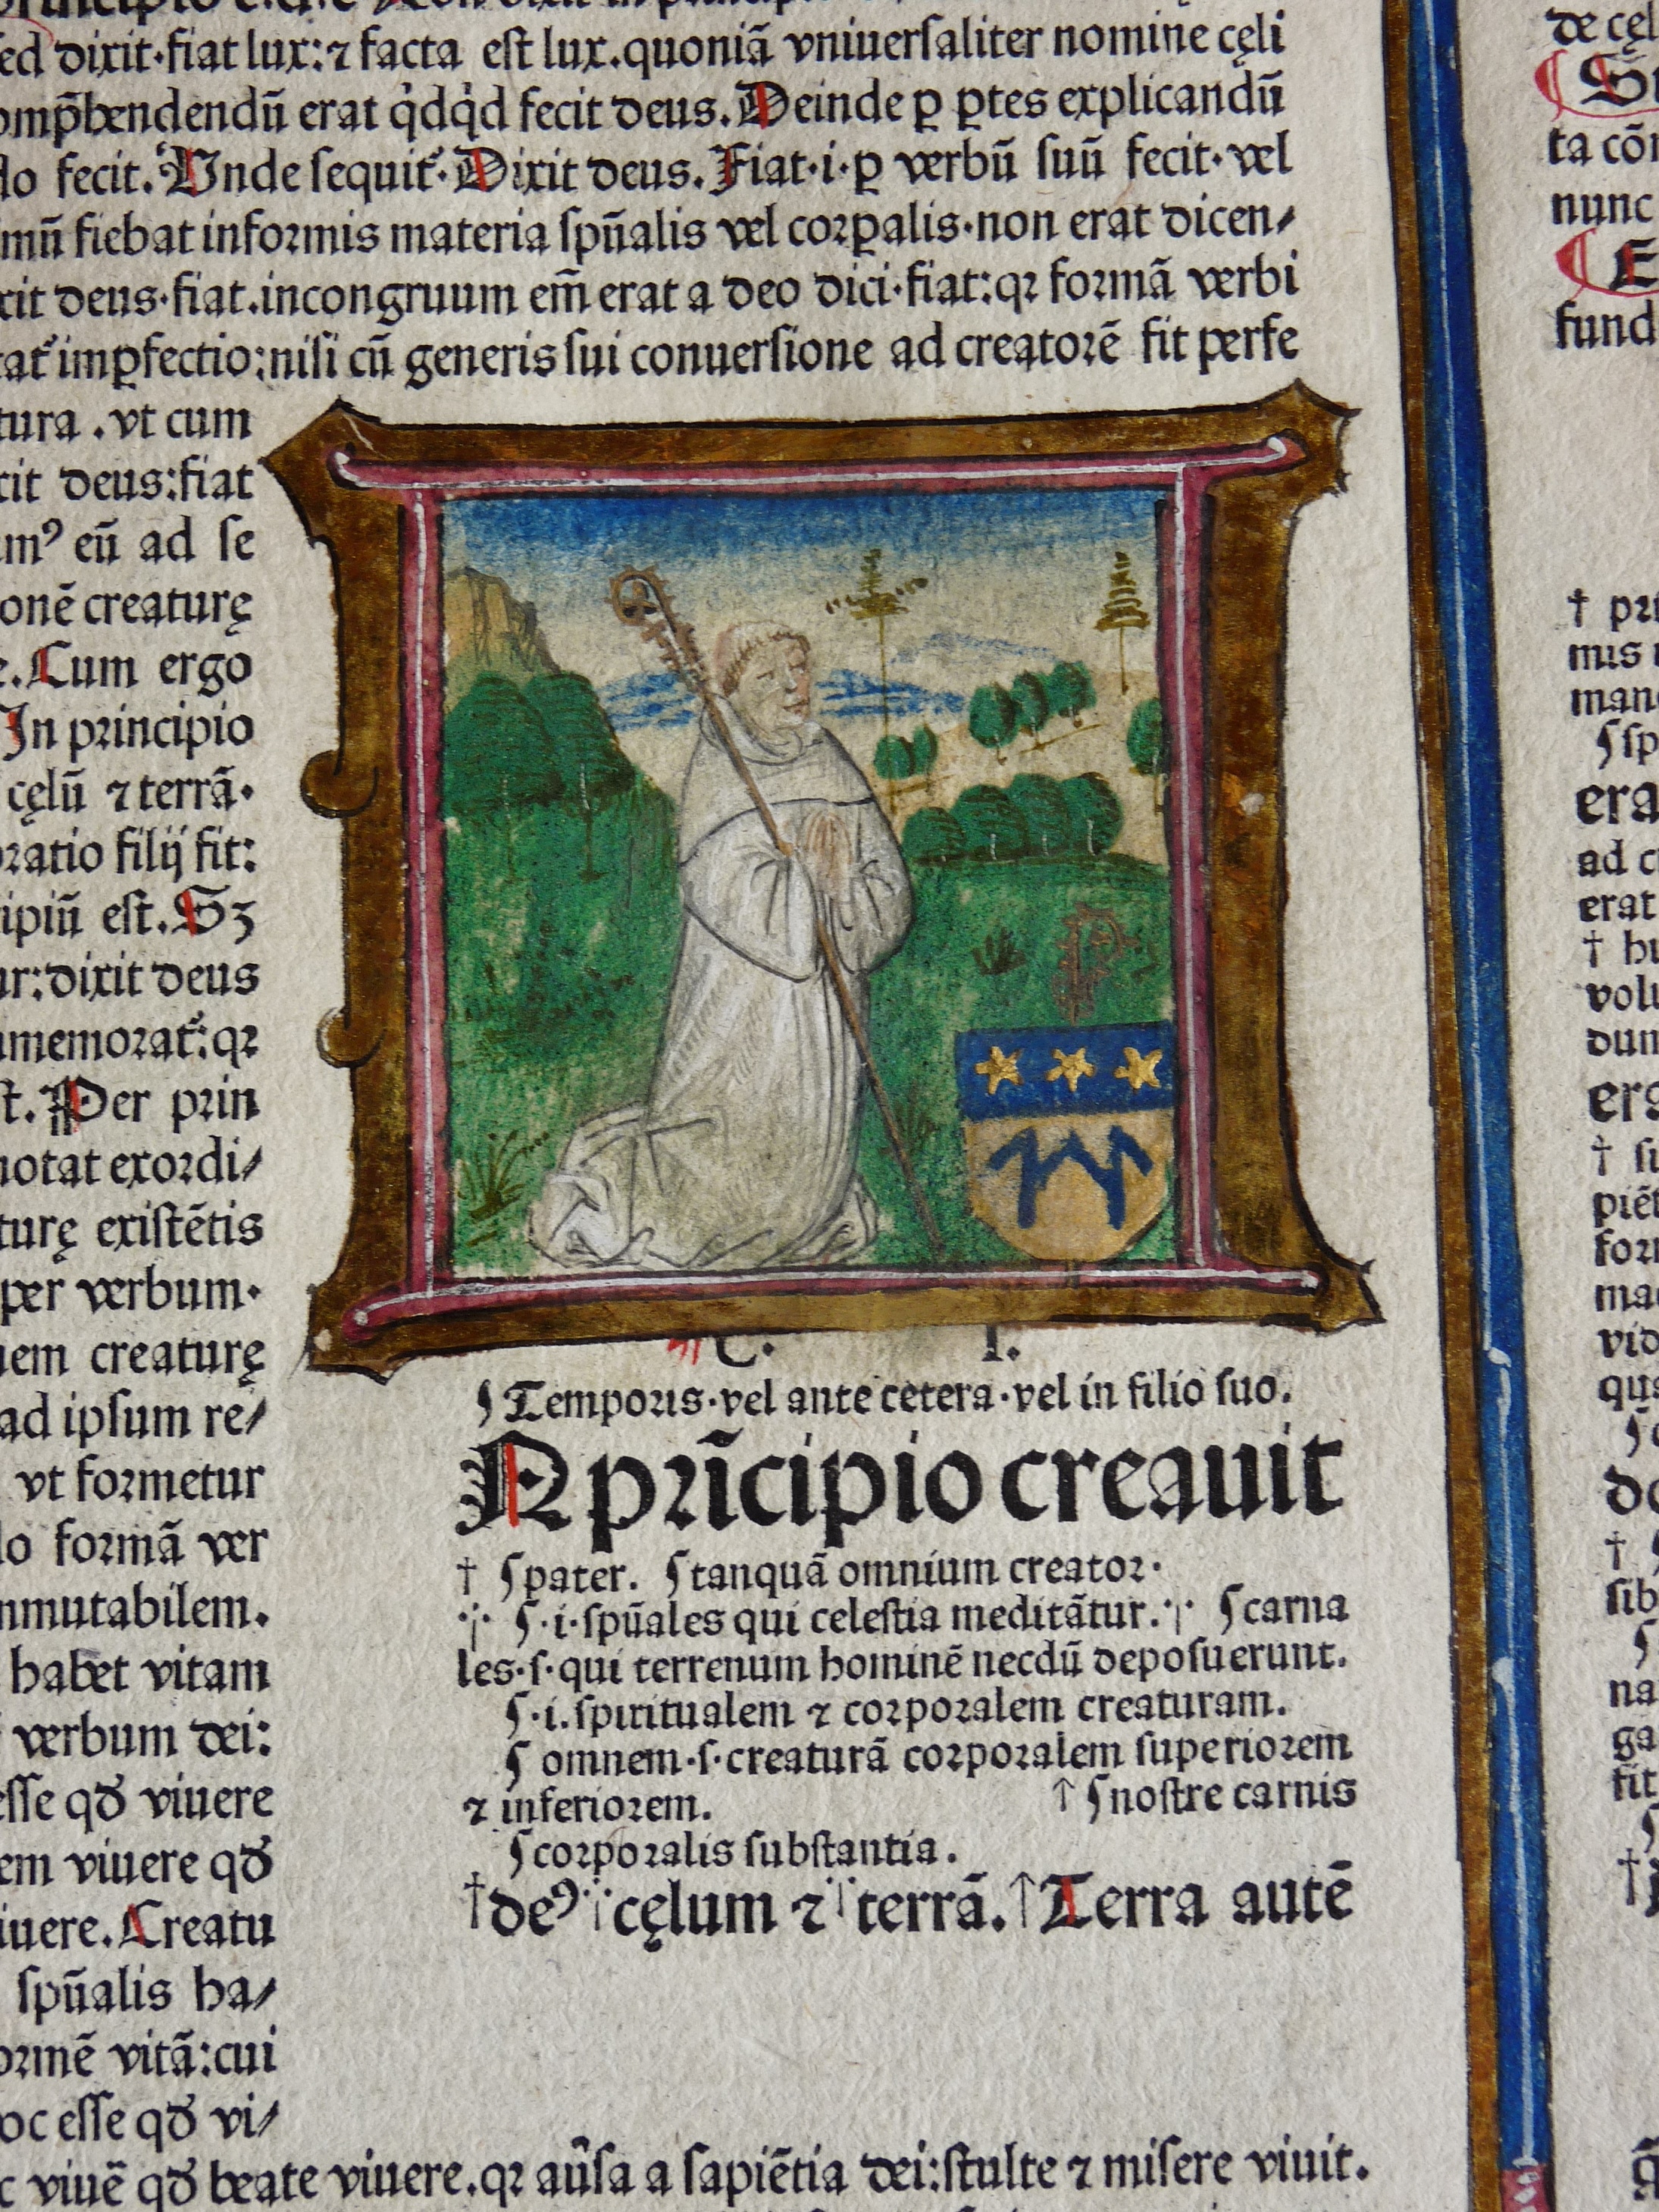 sed dixit·fiat lux:⁊ facta est lux.quoniã vniuersaliter nomine cęli
omp̃hendendũ erat q̇dq̇d fecit deus.Deinde ꝑ ꝑtes explicandũ
do fecit.Unde sequit᷑·Dixit deus.Fiat·i·ꝑ verbũ suũ fecit·vel
mũ fiebat informis materia spũalis vel corꝑalis·non erat dicen/
xit deus·fiat.incongruum em̃ erat a deo dici·fiat:qꝛ formã verbi
tat᷑ imꝑfectio:nisi cũ generis sui conuersione ad creatorẽ fit perfe
tura .vt cum
xit deus:fiat
um⁹ eũ ad se
onẽ creaturę
e.Cum ergo
In principio
cęlũ ⁊ terrã·
oratio filij fit:
ipiũ est.Sꝫ
ur:dixit deus
memorat᷑:qꝛ
st.Per prin
notat exordi/
turę existẽtis
per verbum·
uem creaturę
ad ipsum re/
vt formetur
do formã ver
nmutabilem.
habet vitam
verbum dei:
esse qď viuere
em viuere qď
iuere.Creatu
spũalis ha/
ormẽ vitã:cui
oc esse qď vi/
c viuẽ qď beate viuere.qꝛ aũsa a sapiẽtia dei:stulte ⁊ misere viuit.
C. I.
¶Temporis·vel ante cetera·vel in filio suo.
N prĩcipio creauit
† ¶pater. ¶tanquã omnium creator·
¶·i·spũales qui celestia meditãtur. ¶carna
les·s·qui terrenum hominẽ necdũ deposuerunt.
¶·i.spiritualem ⁊ corporalem creaturam.
¶ omnem·s·creaturã corporalem superiorem
⁊ inferiorem. ↑ ¶nostre carnis
¶corporalis substantia.
†de⁹ cęlum ⁊ terrã.↑Terra autẽ
de cęl
ta cõ
nunc
E
fund
† pri
mis
man
¶sp
era
ad c
erat
† hu
volu
dum
erg
† su
piẽt
form
mat
vid
qua
do
†
sib
na
ga
fit